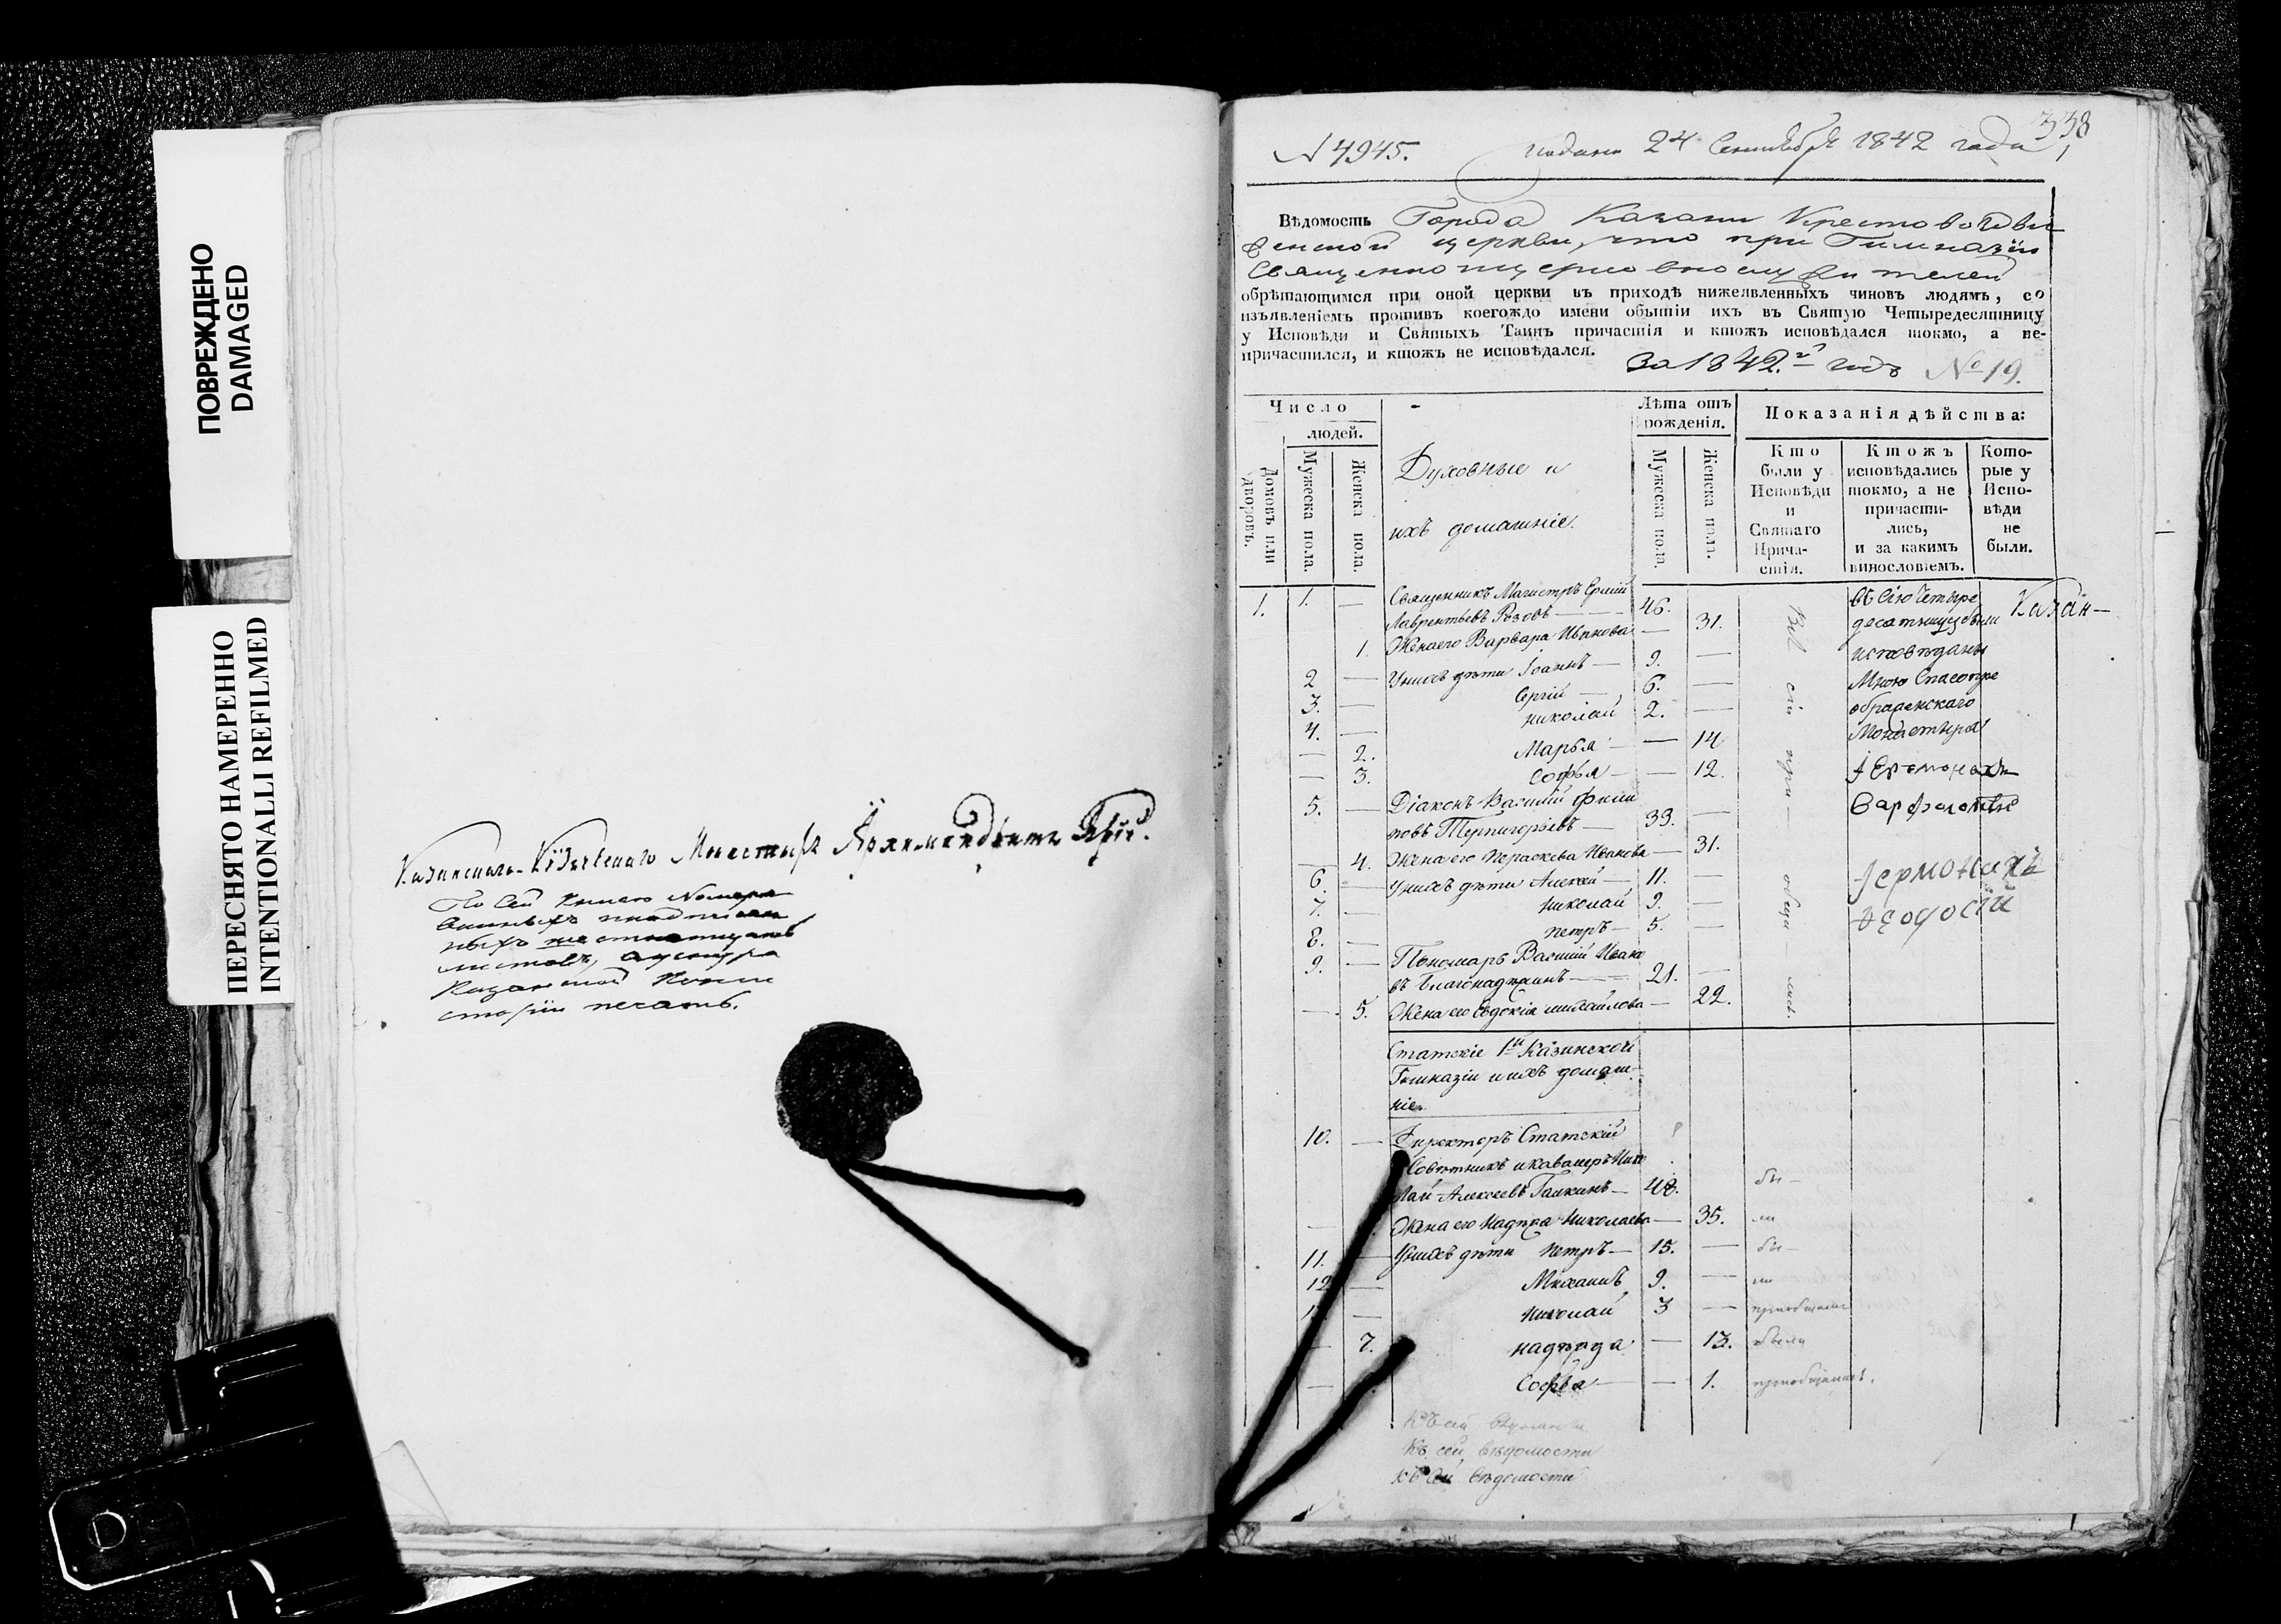 ПОВРЕЖДЕНО
DAMAGED
ПЕРЕСНЯТО НАМЕРЕННО
INTENTIONALLI REFILMED
Казанскаго Кизическаго Монастыря Архимандритъ
По сей книге Номера
листовъ,
Казанской Конси
сторіи печать.
338
№ 4945. Подана 24 Сентября 1842 года
Вѣдомость Города Казани Крестовоздви
женской церкви, что при Гимназіи
Священноцерковнослужителей
обрѣтающимся при оной церкви въ приходѣ нижеявленныхъ чиновъ людямъ, со
изъявленіемъ противъ коегождо имени обытіи ихъ въ Святую Четыредесятницу
у Исповѣди и Святыхъ Таинъ причастія и ктожъ исповѣдался токмо, а не-
причастился, и ктожъ не исповѣдался. За 1842.й годъ № 19.
Число
людей.
Домовъ или дворовъ.
Мужеска пола.
Женска пола.
Духовные и
ихъ домашніе.
Лѣта отъ
рожденія.
Мужеска пола.
Женска пола.
Показанія дѣйства:
Кто
были у
Исповѣди
и
Святаго
Прича-
стія.
Ктожъ
исповѣдались
токмо, а не
причасти-
лись,
и за какимъ
винословіемъ.
Кото-
рые у
Испо-
вѣди
не
были.
1. 1. — Священникъ Магистръ Ермій
Лаврентьевъ Розовъ — 46.
1. Жена его Варвара Иванова — 31.
2 — У нихъ дѣти Іоаннъ — 9. —
3. — Сергій — 6. —
4. — Николай 2. —
— 2. Марья — — 14
— 3. Софья — — 12.
5. — Діаконъ Василій Филип
повъ Терпигорьевъ — 33. —
— 4. Жена его Параскева Иванова — 31.
6. — У нихъ дѣти Алексей — 11. —
7. — Николай 9. —
8. — Петръ — 5. —
9. — Пономарь Василій Ивано
въ Благонадеждинъ — 21. —
— 5. Жена его Евдокія Михайлова — 22.
Всѣ сіи прі — обща — лись.
въ сію Четыре
десятницу были
исповѣданы
Мною Спасопре
ображенскаго
Монастыря
Іеромонахъ
Варфоломей
Казан —
Іермонахъ
Ѳеодосій
Статскіе 1й Казанской
Гимназіи и ихъ домаш-
ніе.
10. — Директоръ Статскій
Совѣтникъ и кавалеръ Нико
лай Алексеевъ Галкинъ — 48. бы —
— Жена его Надежда Николаева — 35. ли
11. — У нихъ дѣти Петръ — 15. — бы —
12 — Михаилъ 9. — ли
— Николай 3 —
— 7. надежда — 13. были
— Софья — — 1.
Къ сей вѣдомости
Къ сей вѣдомости
къ сей вѣдомости